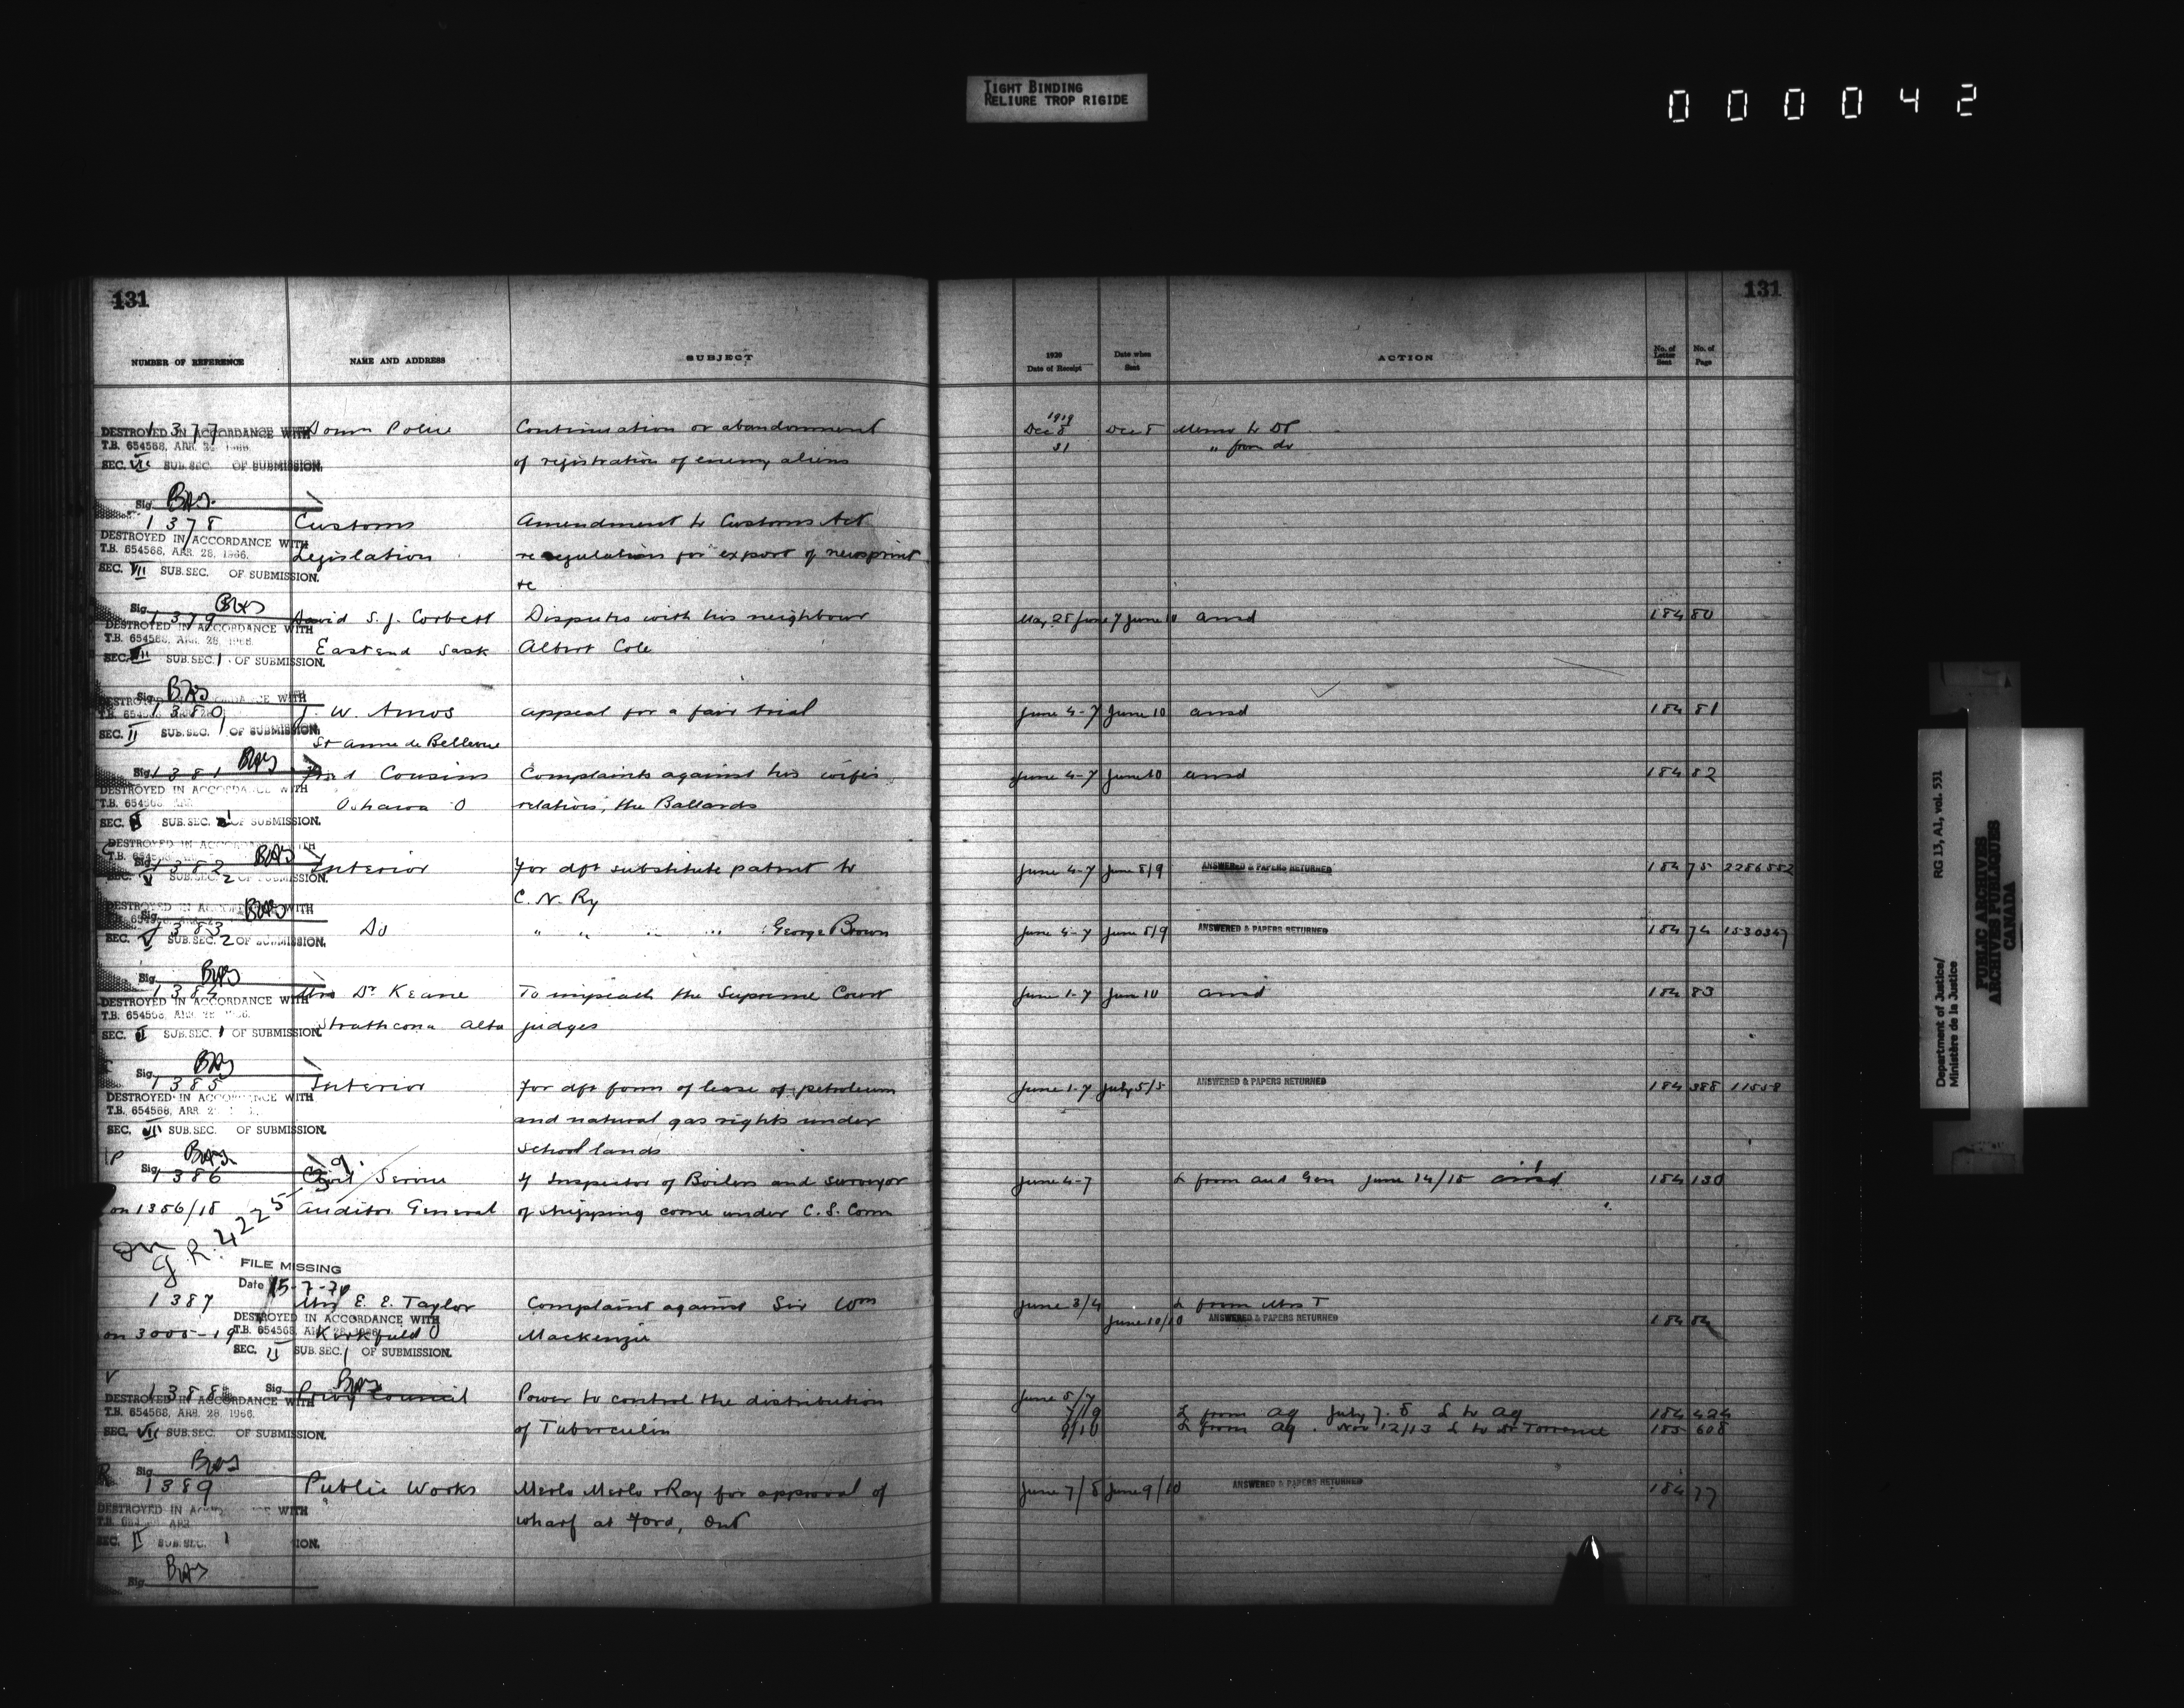 TIGHT BINDING
RELIURE TROP RIGIDE
000042
131
NUMBER OF REFERENCE NAME AND ADDRESS SUBJECT
1377 Dom Police Continuation or abandonment
DESTROYED IN ACCORDANCE WITH
T.B. 654568, APR. 28, 1966.
of registration of enemy aliens
SEC. VII SUB.SEC. OF SUBMISSION.
Sig. BAS
1378 Customs Amendment to Customs Act
DESTROYED IN ACCORDANCE WITH
T.B. 654568, APR. 28, 1966.
Legislation re regulations for export of newsprint
SEC. VII SUB.SEC. OF SUBMISSION.
&c
Sig. BAS
1379 David S. J. Corbett Disputes with his neighbour
DESTROYED IN ACCORDANCE WITH
T.B. 654568, APR. 28, 1966.
Eastend Sask Albert Cole
SEC. VII SUB.SEC. 1 OF SUBMISSION.
Sig. BAS
DESTROYED IN ACCORDANCE WITH
1380 J. W. Amos appeal for a fair trial
SEC. II SUB.SEC. 1 OF SUBMISSION.
St Anne de Bellevue
Sig. BAS
1381 Fred Cousins Complaints against his wife's
DESTROYED IN ACCORDANCE WITH
T.B. 654568, APR.
Oshawa O relatives, the Ballards
SEC. SUB.SEC. OF SUBMISSION.
DESTROYED IN ACCORDANCE WITH
Sig. BAS
1382 Interior For dft substitute patent to
SEC. V SUB.SEC. 2 OF SUBMISSION.
C. N. Ry
DESTROYED IN ACCORDANCE WITH
Sig. BAS
1383 Do " " " " George Brown
SEC. V SUB.SEC. 2 OF SUBMISSION.
Sig. BAS
1384 Mrs Dr Keane To impeach the Supreme Court
DESTROYED IN ACCORDANCE WITH
T.B. 654568, APR. 28, 1966.
Strathcona Alta judges
SEC. II SUB.SEC. 1 OF SUBMISSION.
Sig. BAS
1385 Interior For dft form of lease of petroleum
DESTROYED IN ACCORDANCE WITH
T.B. 654568, APR. 2
and natural gas rights under
SEC. VII SUB.SEC. OF SUBMISSION.
school lands
Sig. BAS
1386 Civil Service If Inspector of Boilers and surveyor
on 1356/18 Auditor General of shipping come under C. S. Comm
on G.R. 4225
FILE MISSING
Date 15-7-70
1387 Mrs E. E. Taylor Complaint against Sir Wm
DESTROYED IN ACCORDANCE WITH
T.B. 654568, APR. 28, 1966.
on 3005-19 Kirkfield O Mackenzie
SEC. II SUB.SEC. 1 OF SUBMISSION.
Sig. BAS
1388 Privy Council Power to control the distribution
DESTROYED IN ACCORDANCE WITH
T.B. 654568, APR. 28, 1966.
of Tuberculin
SEC. VII SUB.SEC. OF SUBMISSION.
Sig. BAS
1389 Public Works Merlo Merlo & Ray for approval of
DESTROYED IN ACCORDANCE WITH
wharf at Ford, Ont
SEC. II SUB.SEC. 1
Sig. BAS
131
1920
Date of Receipt Date when Sent ACTION No. of Letter Sent No. of Page
1919
Dec 8 Dec 8 Memo to DP
31 " from do
May 28 June 7 June 10 ansd 184 80
June 4-7 June 10 ansd 184 81
June 4-7 June 10 ansd 184 82
June 4-7 June 8/9 ANSWERED & PAPERS RETURNED 184 75 2286582
June 4-7 June 8/9 ANSWERED & PAPERS RETURNED 184 74 1530347
June 1-7 June 10 ansd 184 83
June 1-7 July 5/5 ANSWERED & PAPERS RETURNED 184 388 11558
June 4-7 L from Aud Gen June 14/15 ansd 184 130
June 3/4 L from Mrs T
June 10/10 ANSWERED & PAPERS RETURNED 184 84
June 5/7
7/9 L from Ag July 7.8 L to Ag 184 424
9/10 L from Ag. Nov 12/13 L to Dr Torrance 185 608
June 7/8 June 9/10 ANSWERED & PAPERS RETURNED 184 77
Department of Justice/ RG 13, A1, vol. 531
Ministère de la Justice
PUBLIC ARCHIVES
ARCHIVES PUBLIQUES
CANADA